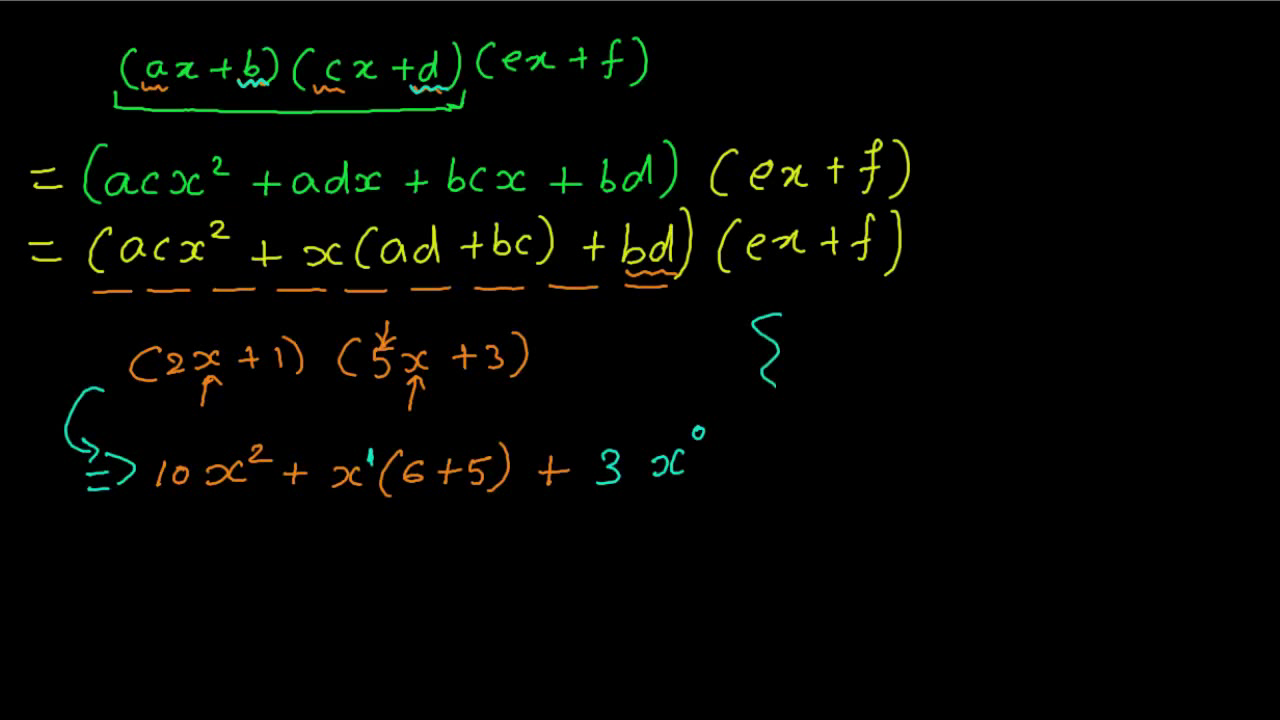 (ax+b)(cx+d)(ex+f)
= (acx² + adx + bcx + bd) (ex+f)
= (acx² + x(ad+bc) + bd) (ex+f)
(2x+1) (5x+3) {
=> 10x² + x¹(6+5) + 3 x⁰